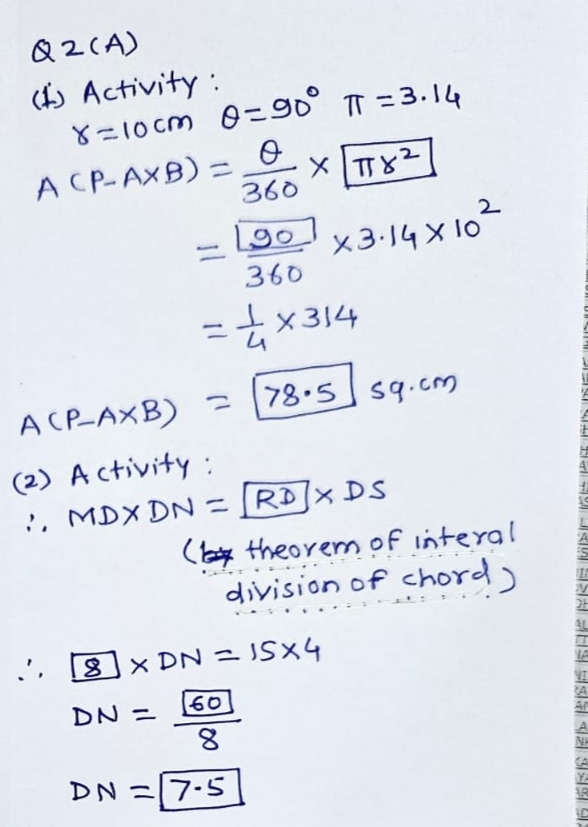 Q2(A)
(1) Activity :
r=10cm θ=90° π=3.14
A(P-AXB) = θ/360 × πr²
= 90/360 × 3.14 × 10²
= 1/4 × 314
A(P-AXB) = 78.5 sq.cm
(2) Activity :
∴ MD×DN = RD × DS
(by theorem of interal
division of chord)
∴ 8 × DN = 15×4
DN = 60/8
DN = 7.5